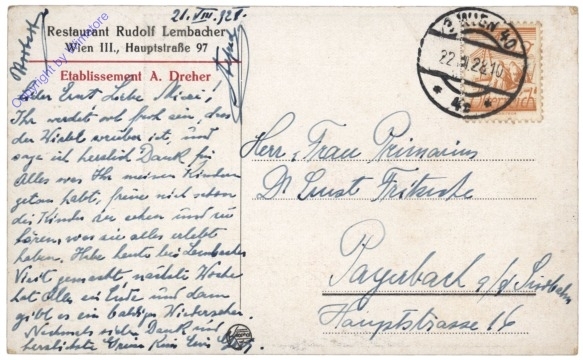 21. VIII. 928.
Restaurant Rudolf Lembacher
Wien III., Hauptstraße 97
Etablissement A. Dreher
Copyright by Winnetore
Lieber Ernst Liebe Mizzi!
Ihr werdet wol froh sein, dass
der Wirbel vorüber ist, und
sage ich herzlich Dank für
Alles was Ihr meinen Kindern
getan habt, freue mich schon
die Kinder zu sehen und zu
hören, was sie alles erlebt
haben. Habe heute bei Lembacher
Visit gemacht, nächste Woche
hat Alles ein Ende und dann
gibt es ein baldiges Wiedersehen.
Nochmals vielen Dank und
herzlichste Grüsse
WIEN 40
22. 28.10
Herr, Frau Primarius
Dr Ernst Fritsche
Payerbach a/d Südbahn
Hauptstrasse 16